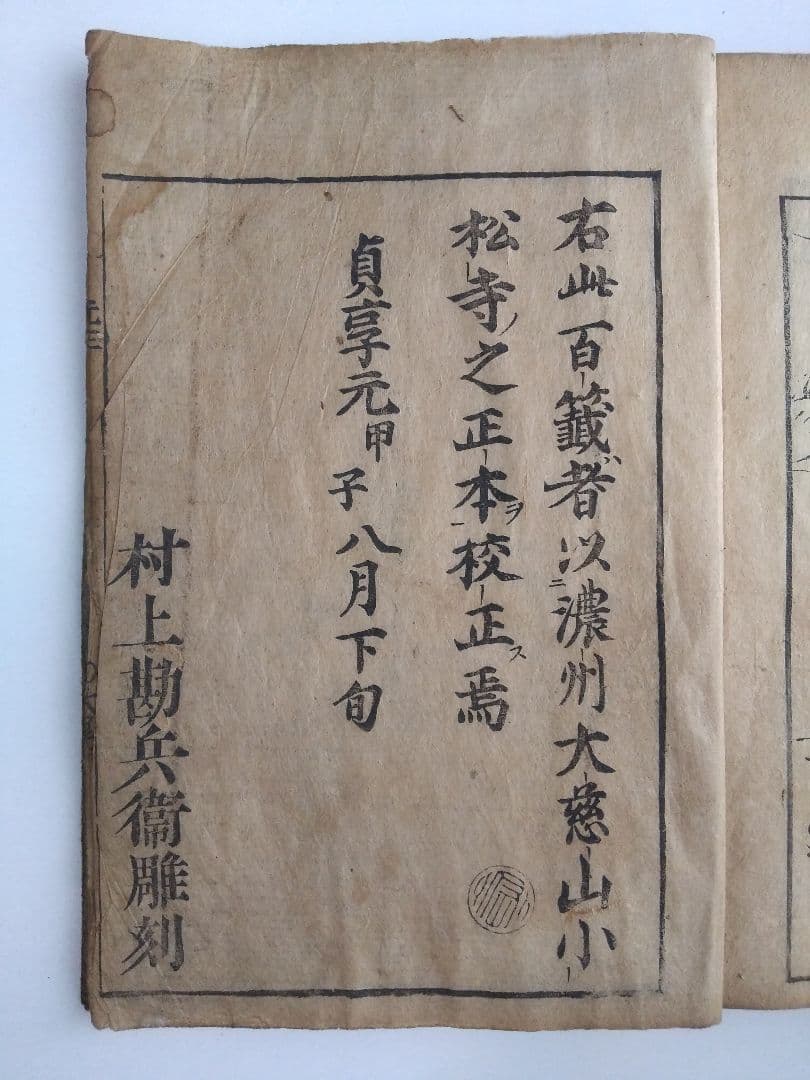 右此百籤者以濃州大慈山小
松寺ノ之正本ヲ校正ス焉
貞享元甲子八月下旬
村上勘兵衞雕刻